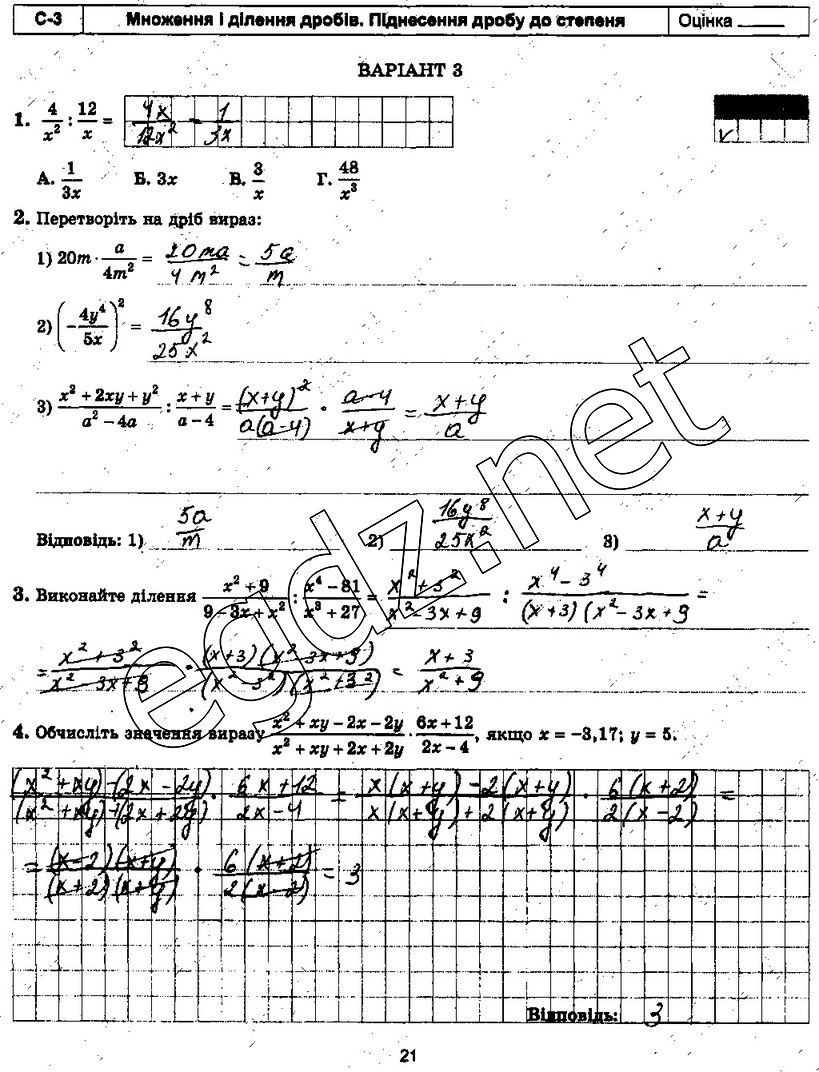 С-3 Множення і ділення дробів. Піднесення дробу до степеня Оцінка ____
ВАРІАНТ 3
1. 4/x² : 12/x = 4x/12x² = 1/3x
v
А. 1/3x Б. 3x В. 3/x Г. 48/x³
2. Перетворіть на дріб вираз:
1) 20m · a/4m² = 20ma/4m² = 5a/m
2) (-4y⁴/5x)² = 16y⁸/25x²
3) (x² + 2xy + y²)/(a² - 4a) : (x + y)/(a - 4) = (x+y)²/a(a-4) · (a-4)/(x+y) = (x+y)/a
Відповідь: 1) 5a/m 2) 16y⁸/25x² 3) (x+y)/a
3. Виконайте ділення (x² + 9)/(9 - 3x + x²) : (x⁴ - 81)/(x³ + 27) = (x² + 3²)/(x² - 3x + 9) : (x⁴ - 3⁴)/((x+3)(x² - 3x + 9) =
= (x² + 3²)/(x² - 3x + 9) · (x+3)(x² - 3x + 9)/(x² - 3²)(x² + 3²) = (x + 3)/(x² + 9)
4. Обчисліть значення виразу (x² + xy - 2x - 2y)/(x² + xy + 2x + 2y) · (6x + 12)/(2x - 4), якщо x = -3,17; y = 5.
(x² + xy) - (2x - 2y)/(x² + xy) + (2x + 2y) · (6x + 12)/(2x - 4) = x(x + y) - 2(x + y)/x(x + y) + 2(x + y) · 6(x + 2)/2(x - 2) =
= (x - 2)(x + y)/(x + 2)(x + y) · 6(x + 2)/2(x - 2) = 3
Відповідь: 3
21
egdz.net